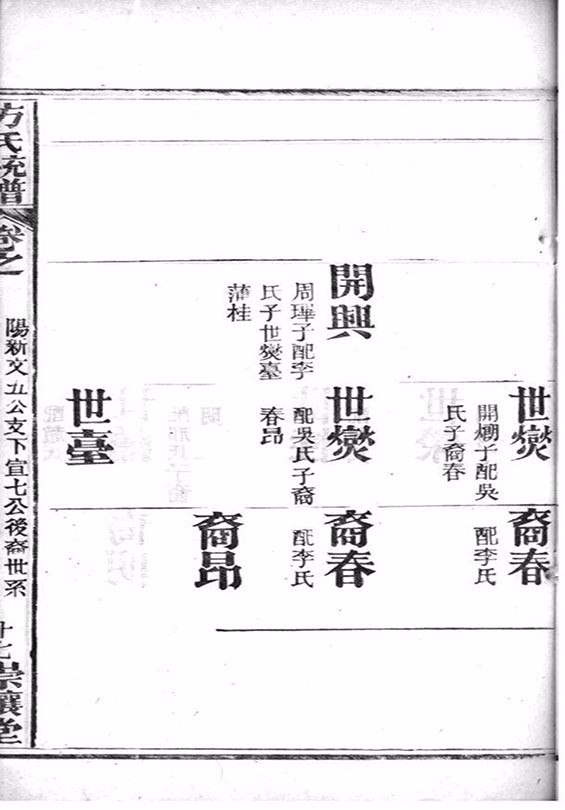 世燮
開子配吳
氏子裔春
裔春
配李氏
開興
周子配李
氏子世燮臺
蒲桂
世燮
配吳氏子裔
春昂
裔春
配李氏
裔昂
世臺
方氏統譜
卷之
陽新文五公支下宣七公後裔世系
十七
崇讓堂